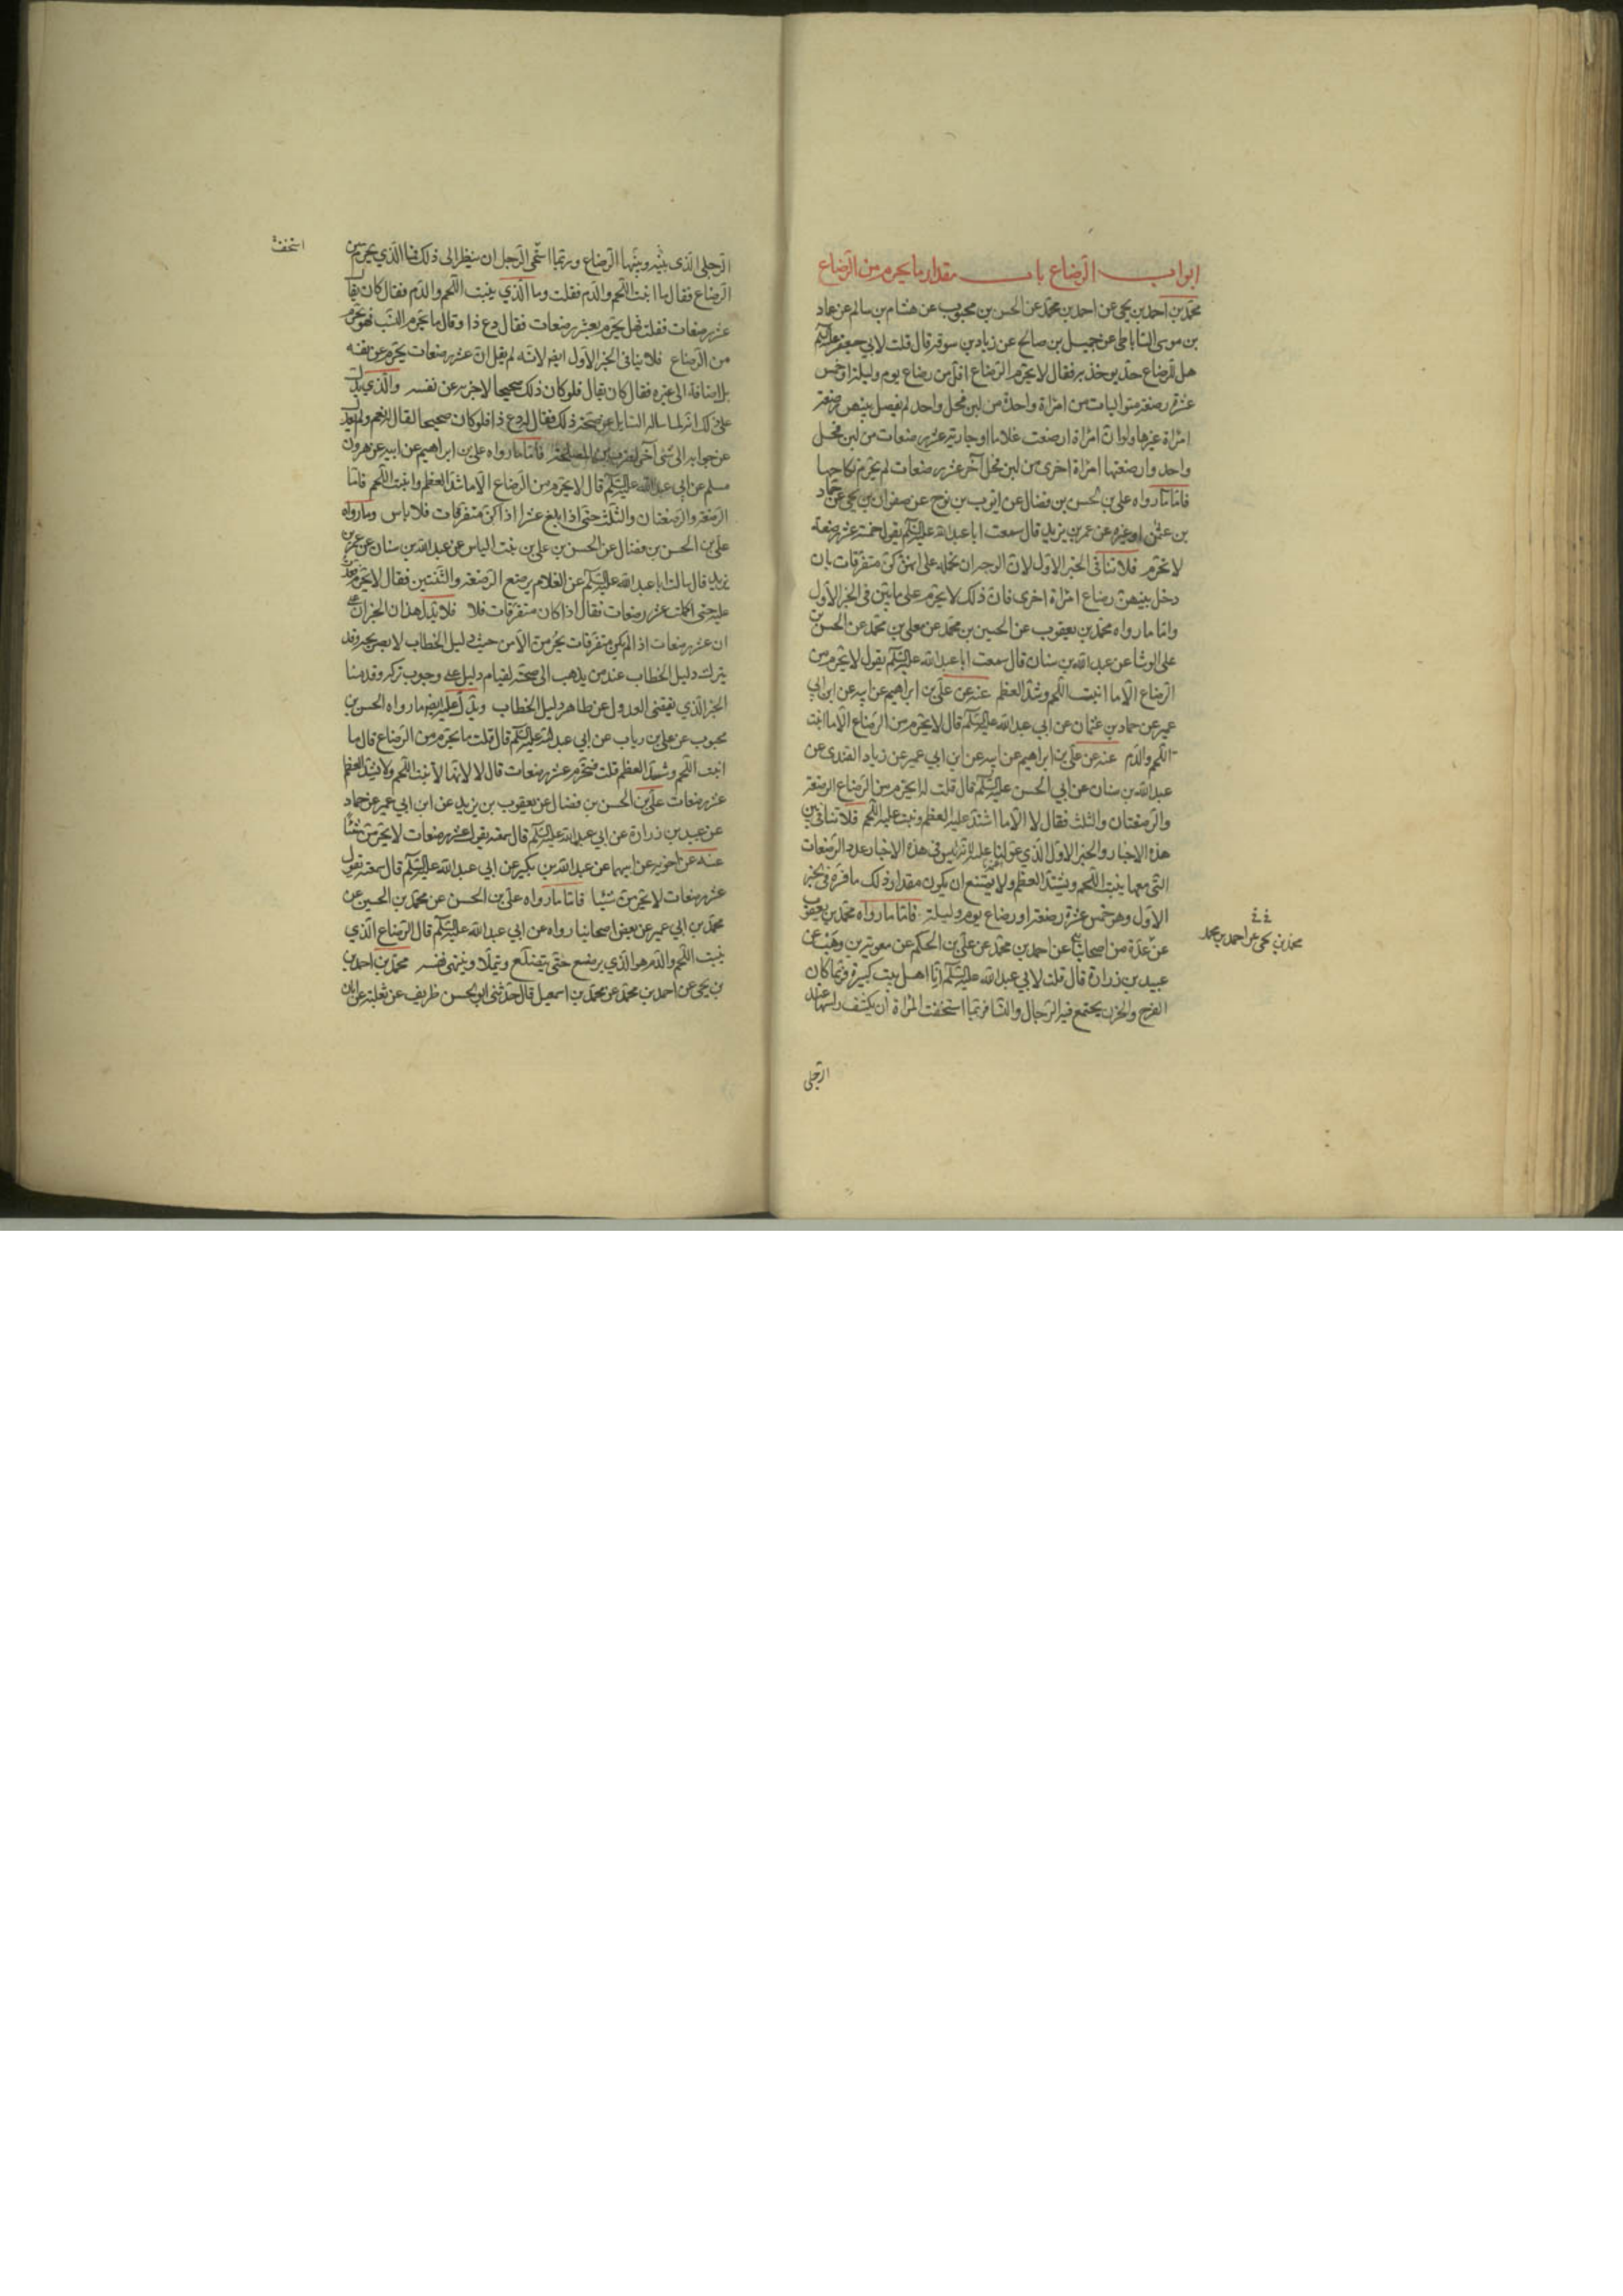 ابواب الرضاع باب مقدار ما يحرم من الرضاع
محمد بن احمد بن يحيى عن احمد بن محمد عن الحسن بن محبوب عن هشام بن سالم عن عمار
بن موسى الساباطى عن جميل بن صالح عن زياد بن سوقه قال قلت لابي جعفر عليه السلم
هل للرضاع حد يؤخذ به فقال لا يحرم الرضاع اقل من رضاع يوم وليلة او خمس
عشرة رضعة متواليات من امراة واحدة من لبن فحل واحد لم يفصل بينهن رضعة
امراة غيرها ولو ان امراة ارضعت غلاما او جارية عشر رضعات من لبن فحل
واحد وارضعتها امراة اخرى من لبن فحل آخر عشر رضعات لم يحرم نكاحها
فاما ما رواه على بن الحسن بن فضال عن ايوب بن نوح عن صفوان بن يحيى عن حماد
بن عثمن او غيره عن عمر بن يزيد قال سمعت ابا عبد الله عليه السلم يقول خمسة عشر رضعة
لا تحرم فلا تنافى الخبر الاول لان الوجه ان نحمله على انهن كن متفرقات بان
دخل بينهن رضاع امراة اخرى فان ذلك لا يحرم على ما بين فى الخبر الاول
واما ما رواه محمد بن يعقوب عن الحسين بن محمد عن معلى بن محمد عن الحسن بن
على الوشا عن عبد الله بن سنان قال سمعت ابا عبد الله عليه السلم يقول لا يحرم من
الرضاع الا ما انبت اللحم وشد العظم عنه عن على بن ابراهيم عن ابيه عن ابن ابي
عمير عن حماد بن عثمان عن ابي عبد الله عليه السلم قال لا يحرم من الرضاع الا ما انبت
اللحم والدم عنه عن على بن ابراهيم عن ابيه عن ابن ابي عمير عن زياد القندى عن
عبد الله بن سنان عن ابي الحسن عليه السلم قال قلت له يحرم من الرضاع الرضعة
والرضعتان والثلث فقال لا الا ما اشتد عليه العظم ونبت عليه اللحم فلا تنافى بين
هذه الاخبار والخبر الاول الذي عولنا عليه لانه ليس فى هذه الاخبار عدد الرضعات
التى معها ينبت اللحم ويشتد العظم ولا يمتنع ان يكون مقدار ذلك ما فسره فى الخبر
الاول وهو خمس عشرة رضعة او رضاع يوم وليلة فاما ما رواه محمد بن يعقوب
عن عدة من اصحابنا عن احمد بن محمد عن على بن الحكم عن معوية بن وهب عن
عبيد بن زرارة قال قلت لابي عبد الله عليه السلم انا اهل بيت كبيرة فربما كان
الفرح والحزن يجتمع فيه الرجال والنسا فربما استخفت المراة ان يكشف راسها عند
محمد بن يحيى عن احمد بن محمد
الرجل
استخفت
الرجل الذى بينه وبينها الرضاع وربما استحى الرجل ان ينظر الى ذلك فما الذي يحرم من
الرضاع فقال ما انبت اللحم والدم فقلت وما الذي ينبت اللحم والدم فقال كان يقال
عشر رضعات فقلت فهل يحرم بعشر رضعات فقال دع ذا وقال ما يحرم من النسب فهو يحرم
من الرضاع فلا ينافى الخبر الاول ايضا لانه لم يقل ان عشر رضعات يحرم عن نفسه
بل اضافه الى غيره فقال كان يقال فلو كان ذلك صحيحا لاخبر به عن نفسه والذي يدل
على ذلك انه لما ساله السايل عن صحة ذلك فقال له دع ذا فلو كان صحيحا لقال نعم ولم يعدل
عن جوابه الى شى آخر لضرب من المصلحة فاما ما رواه على بن ابراهيم عن ابيه عن هرون
مسلم عن ابي عبد الله عليه السلم قال لا يحرم من الرضاع الا ما شد العظم وانبت اللحم فاما
الرضعة والرضعتان والثلث حتى اذا بلغ عشرا اذا كن متفرقات فلا باس وما رواه
على بن الحسن بن فضال عن الحسن بن على بن بنت الياس عن عبد الله بن سنان عن عمر بن
يزيد قال سالت ابا عبد الله عليه السلم عن الغلام يرضع الرضعة والثنتين فقال لا يحرم فعددت
عليه حتى اكملت عشر رضعات فقال اذا كان متفرقات فلا فلا يدل هذان الخبران على
ان عشر رضعات اذا لم يكن متفرقات يحرمن الا من حيث دليل الخطاب وقد
يترك دليل الخطاب عند من يذهب الى صحته لقيام دليل على وجوب تركه وقد قدمنا
الخبر الذي يقتضى العدول عن ظاهر دليل الخطاب ويدل عليه ايضا ما رواه الحسن بن
محبوب عن على بن رياب عن ابي عبد الله عليه السلم قال قلت ما يحرم من الرضاع قال ما
انبت اللحم وشد العظم قلت فيحرم عشر رضعات قال لا لانها لا تنبت اللحم ولا تشد العظم
عشر رضعات على بن الحسن بن فضال عن يعقوب بن يزيد عن ابن ابي عمير عن حماد
عن عبيد بن زرارة عن ابي عبد الله عليه السلم قال سمعته يقول عشر رضعات لا يحرمن شيئا
عنه عن اخويه عن ابيهما عن عبد الله بن بكير عن ابي عبد الله عليه السلم قال سمعته يقول
عشر رضعات لا يحرمن شيئا فاما ما رواه على بن الحسن عن محمد بن الحسين عن
محمد بن ابي عمير عن بعض اصحابنا رواه عن ابي عبد الله عليه السلم قال الرضاع الذي
ينبت اللحم والدم هو الذي يرضع حتى يتضلع ويتملا وينتهى نفسه محمد بن احمد بن
بن يحيى عن احمد بن محمد عن محمد بن اسمعيل قال حدثنى ابو الحسن ظريف عن ثعلبة عن ابان